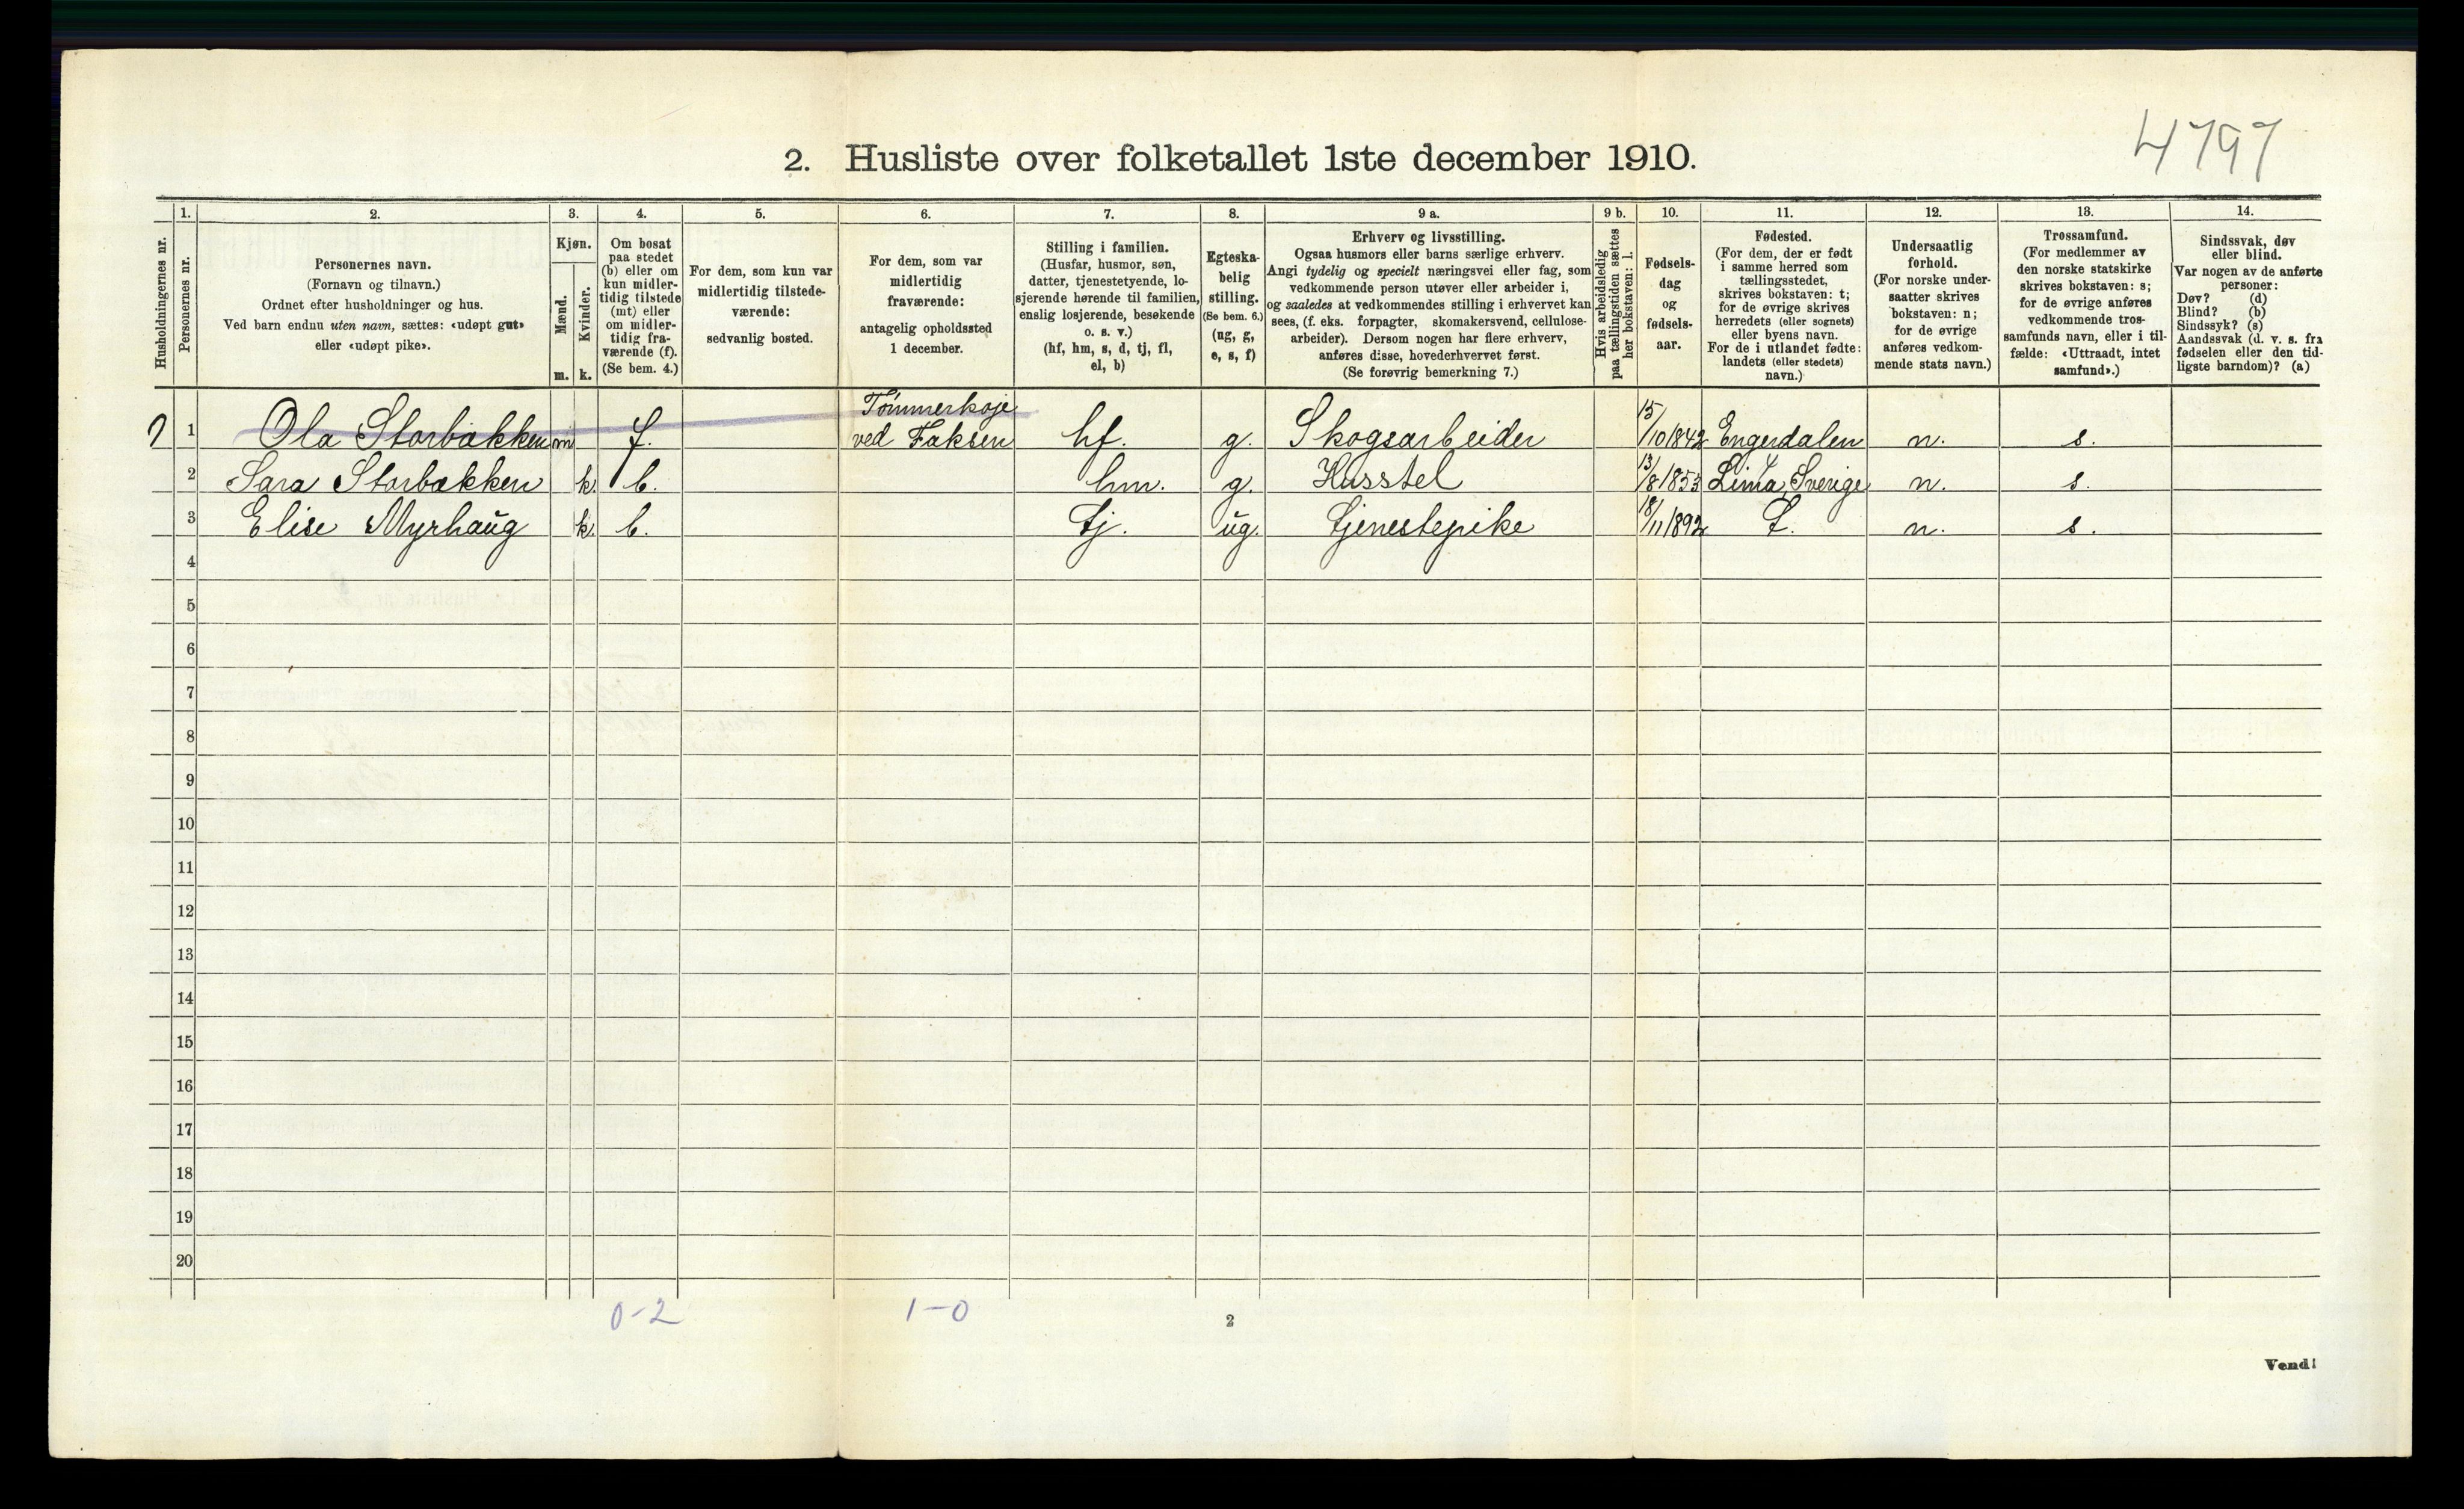 4797
2. Husliste over folketallet 1ste december 1910.
Husholdningernes nr.
1.
Personernes nr.
2.
Personernes navn.
(Fornavn og tilnavn.)
Ordnet efter husholdninger og hus.
Ved barn endnu uten navn, sættes: «udøpt gut»
eller «udøpt pike».
3.
Kjøn.
Mænd.
Kvinder.
m. k.
4.
Om bosat
paa stedet
(b) eller om
kun midler-
tidig tilstede
(mt) eller
om midler-
tidig fra-
værende (f).
(Se bem. 4.)
5.
For dem, som kun var
midlertidig tilstede-
værende:
sedvanlig bosted.
6.
For dem, som var
midlertidig
fraværende:
antagelig opholdssted
1 december.
7.
Stilling i familien.
(Husfar, husmor, søn,
datter, tjenestetyende, lo-
sjerende hørende til familien,
enslig losjerende, besøkende
o. s. v.)
(hf, hm, s, d, tj, fl,
el, b)
8.
Egteska-
belig
stilling.
(Se bem. 6.)
(ug, g,
e, s, f)
9 a.
Erhverv og livsstilling.
Ogsaa husmors eller barns særlige erhverv.
Angi tydelig og specielt næringsvei eller fag, som
vedkommende person utøver eller arbeider i,
og saaledes at vedkommendes stilling i erhvervet kan
sees, (f. eks. forpagter, skomakersvend, cellulose-
arbeider). Dersom nogen har flere erhverv,
anføres disse, hovederhvervet først.
(Se forøvrig bemerkning 7.)
9 b.
Hvis arbeidsledig
paa tællingstiden sættes
her bokstaven: l.
10.
Fødsels-
dag
og
fødsels-
aar.
11.
Fødested.
(For dem, der er født
i samme herred som
tællingsstedet,
skrives bokstaven: t;
for de øvrige skrives
herredets (eller sognets)
eller byens navn.
For de i utlandet fødte:
landets (eller stedets)
navn.)
12.
Undersaatlig
forhold.
(For norske under-
saatter skrives
bokstaven: n;
for de øvrige
anføres vedkom-
mende stats navn.)
13.
Trossamfund.
(For medlemmer av
den norske statskirke
skrives bokstaven: s;
for de øvrige anføres
vedkommende tros-
samfunds navn, eller i til-
fælde: «Uttraadt, intet
samfund».)
14.
Sindssvak, døv
eller blind.
Var nogen av de anførte
personer:
Døv? (d)
Blind? (b)
Sindssyk? (s)
Aandssvak (d. v. s. fra
fødselen eller den tid-
ligste barndom)? (a)
1 Ola Storbækken m f. Tömmerkoje ved Faksen hf. g. Skogsarbeider 15/10 1842 Engerdalen n. s.
2 Sara Storbækken k. b. hm. g. Husstel 13/8 1853 Lima, Sverige n. s.
3 Elise Myrhaug k. b. tj. ug. tjenestepike 18/11 1892 t. n. s.
4
5
6
7
8
9
10
11
12
13
14
15
16
17
18
19
20
0-2 1-0
2
Vend!